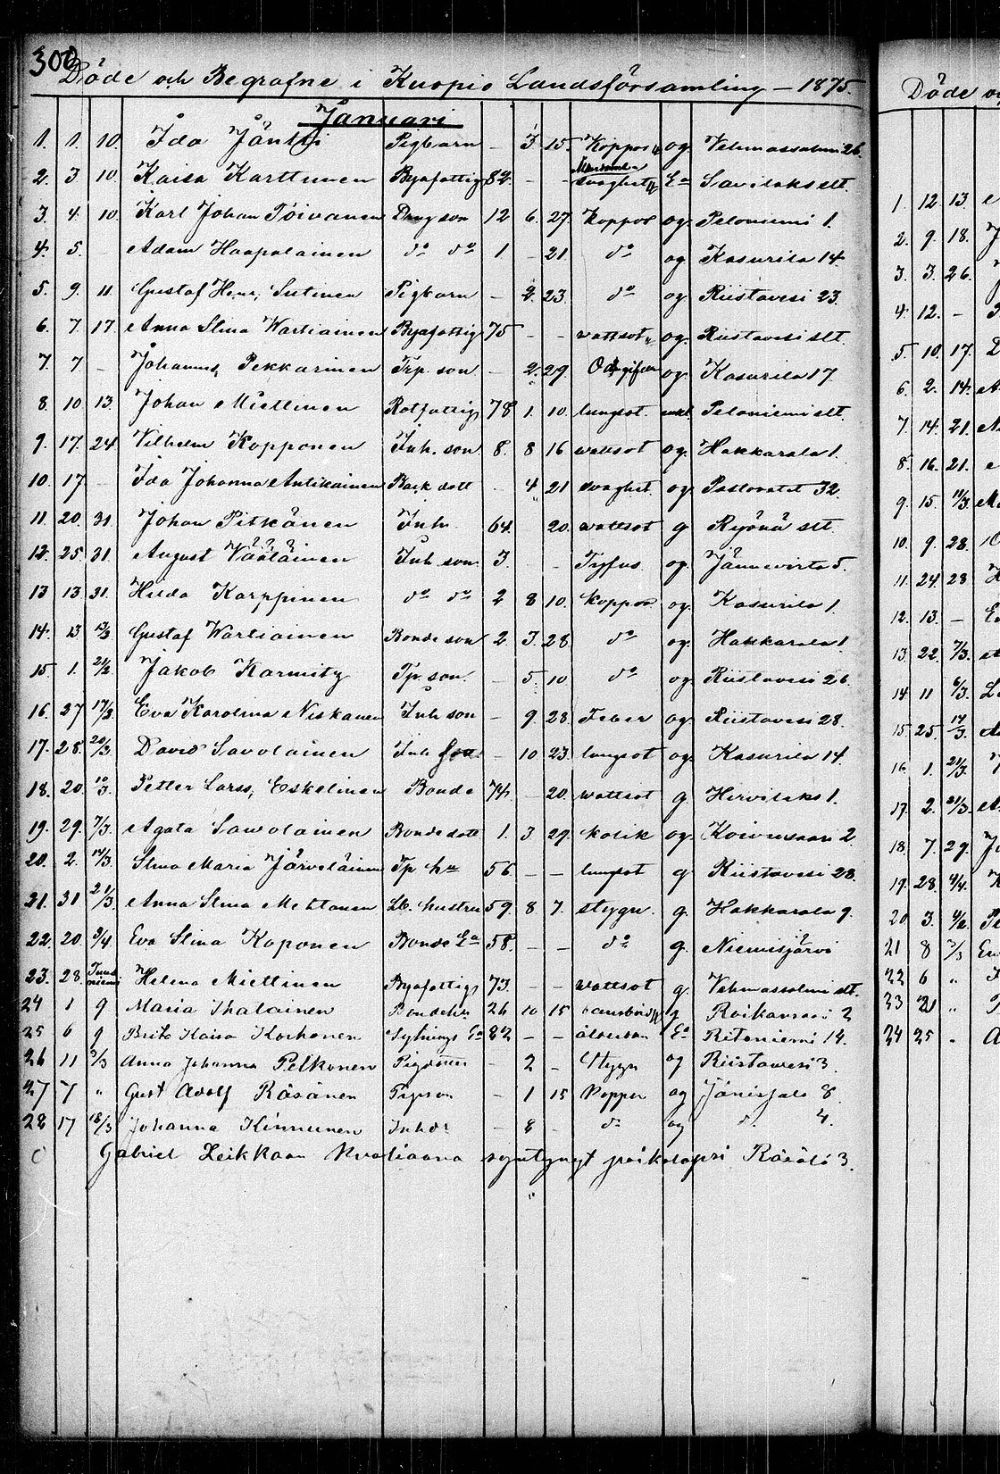 300
Döde och Begrafne i Kuopio Landsförsamling – 1875.
Januari
1. 1. 10. Ida Jäntti Pigbarn – 3 15. Koppor og Vehmassalmi 26.
2. 3 10. Kaisa Karttunen Byafattig 82. – – svaghet Ea Savilaks slt.
3. 4. 10. Karl Johan Toivanen Dräng son 12 6. 27. Koppor og Peloniemi 1.
4. 5. – Adam Haapalainen do do 1. – 21 do og Kasurila 14.
5. 9. 11. Gustaf Henr. Sutinen Pigbarn – 2. 23. do og Riistavesi 23.
6. 7. 17. Anna Stina Wartiainen Byafattig 75 – – wattsot og. Riistavesi slt.
7. 7 – Johannes Pekkarinen Trp. son – 2. 29. Odgifven og Kasurila 17.
8. 10. 13. Johan Miettinen Rotfattig 78 1. 10. lungsot. enkl. Peloniemi slt.
9. 17. 24 Vilhelm Kopponen Inh. son 8. 8 16 wattsot og. Hakkarala 1.
10. 17. – Ida Johanna Antikainen Back dott – 4 21 svaghet og. 32.
11. 20. 31. Johan Pitkänen Inh. 64. 20. wattsot g Ryönä slt.
12. 25 31. August Väätäinen Inh. son 3. – – Tyfus og. Jännevirta 5.
13 13 31. Hilda Karppinen do do 2 8 10. koppor og. Kasurila 1.
14. 13 Gustaf Wartiainen Bonde son 2 3. 28 do og Hakkarala 1.
15 1. Jakob Karmitz Tp. son. – 5. 10 do og Riistavesi 26.
16. 27 17/3 Eva Karolina Niskanen Inh son – 9. 28. Feber og Riistavesi 28.
17. 28. 20/3. David Savolainen Inh son – 10 23. lungsot og. Kasurila 14.
18. 20. 10/3. Petter Larss. Eskelinen Bonde 74. – 20. wattsot g. Hirvilaks 1.
19. 29. 7/3. Agata Savolainen Bonde dott 1. 3 29. kolik og. Koivusaari 2
20. 2. 14/3. Stina Maria Järveläinen Tp. hu 56 – – lungsot g Riistavesi 28.
21. 31 21/3. Anna Stina Mehtonen Lb. hustru 59. 8 7. stygn. g. Hakkarala 9.
22. 20. 9/4 Eva Stina Koponen Bonde Ea 58. – – do g. Niemisjärvi
23. 28. Helena Miettinen Byafattig 73. – – wattsot g. Vehmassalmi slt.
24 1 9 Maria Ihalainen Bondehu 26 10 15 g Roikansaari 2
25 6 9 Brita Kaisa Korhonen Sytnings Ea 82 – – ålderdom Ea Ritoniemi 14.
26 11 9/3 Anna Johanna Pelkonen – 2 – Stygn og Riistavesi 3.
27 7 " Gust Adolf Räsänen Pigson – 1 15 Koppor og Jänissalo 8.
28 17 18/3 Johanna Kinnunen Inhdr – 8 do og d. 4.
Gabriel Heikkaan
Döde o
1. 12. 13.
2. 9. 18.
3. 3. 26.
4. 12. –
5. 10. 17.
6. 2. 14.
7. 14. 21.
8. 16. 21.
9. 15. 14/3.
10. 9. 28.
11. 24 28
12. 13. –
13. 22. 7/3.
14 11 6/3.
15. 25. 14/3.
16. 1. 21/3.
17. 2. 21/3.
18. 7. 29.
19. 28. 4/4.
20 3. 4/6.
21 8 7/3
22 6 "
23 2 "
24 25 .